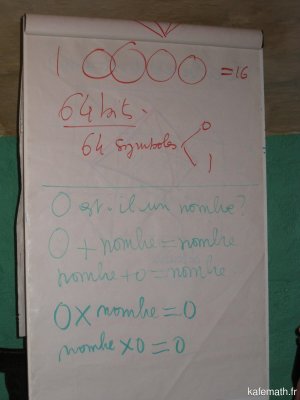 1 0 0 0 0 = 16
64 bits.
64 symboles
0
1
0 est-il un nombre?
0 + nombre = nombre
nombre + 0 = nombre
0 x nombre = 0
nombre x 0 = 0
kafemath.fr